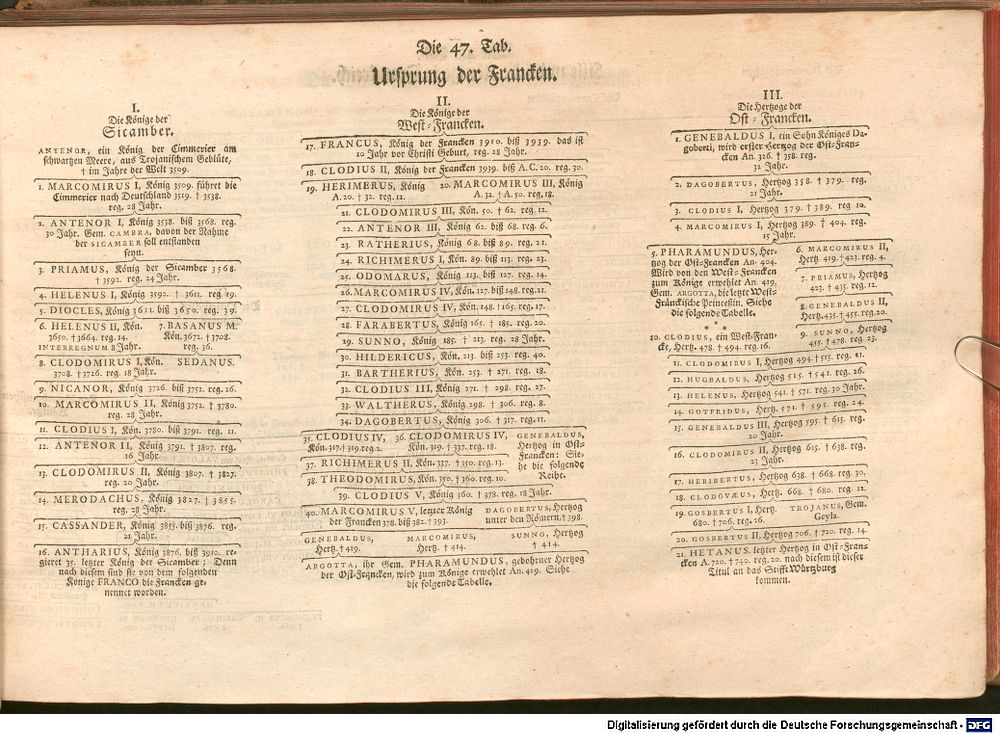 Die 47. Tab.
Ursprung der Francken.
I.
Die Könige der
Sicamber.
ANTENOR, ein König der Cimmerier am
schwartzen Meere, aus Trojanischem Geblüte,
† im Jahre der Welt 3509.
1. MARCOMIRUS I, König 3509. führet die
Cimmerier nach Deutschland 3519. † 3538.
reg. 28 Jahr.
2. ANTENOR I, König 3538. biß 3568. reg.
30 Jahr. Gem. CAMBRA, davon der Nahme
der SICAMBER soll entstanden
seyn.
3. PRIAMUS, König der Sicamber 3568.
† 3592. reg. 24 Jahr.
4. HELENUS I, König 3592. † 3611. reg. 19.
5. DIOCLES, König 3611. biß 3650. reg. 39.
6. HELENUS II, Kön. 7. BASANUS M.
3650. † 3664. reg. 14. Kön. 3671. † 3708.
INTERREGNUM 8 Jahr. reg. 36.
8. CLODOMIRUS I, Kön. SEDANUS.
3708. † 3726. reg. 18 Jahr.
9. NICANOR, König 3726. biß 3752. reg. 26.
10. MARCOMIRUS II, König 3752. † 3780.
reg. 28 Jahr.
11. CLODIUS I, Kön. 3780. biß 3791. reg. 11.
12. ANTENOR II, König 3791. † 3807. reg.
16 Jahr.
13. CLODOMIRUS II, König 3807. † 3827.
reg. 20 Jahr.
14. MERODACHUS, König 3827. † 3855.
reg. 28 Jahr.
15. CASSANDER, König 3855. biß 3876. reg.
21 Jahr.
16. ANTHARIUS, König 3876. biß 3910. re-
gieret 35. letzter König der Sicamber; Denn
nach diesem sind sie von dem folgenden
Könige FRANCO die Francken ge-
nennet worden.
II.
Die Könige der
West-Francken.
17. FRANCUS, König der Francken 3910. biß 3939. das ist
10 Jahr vor Christi Geburt, reg. 28 Jahr.
18. CLODIUS II, König der Francken 3939. biß A.C. 20. reg. 30.
19. HERIMERUS, König 20. MARCOMIRUS III, König
A. 20. † 32. reg. 12. A. 32. † A. 50. reg. 18.
21. CLODOMIRUS III, Kön. 50. † 62. reg. 12.
22. ANTENOR III, König 62. biß 68. reg. 6.
23. RATHERIUS, König 68. biß 89. reg. 21.
24. RICHIMERUS I, Kön. 89. biß 113. reg. 23.
25. ODOMARUS, König 113. biß 127. reg. 14.
26. MARCOMIRUS IV, Kön. 127. biß 148. reg. 21.
27. CLODOMIRUS IV, Kön. 148. † 165. reg. 17.
28. FARABERTUS, König 165. † 185. reg. 20.
29. SUNNO, König 185. † 213. reg. 28. Jahr.
30. HILDERICUS, Kön. 213. biß 253. reg. 40.
31. BARTHERIUS, Kön. 253. † 271. reg. 18.
32. CLODIUS III, König 271. † 298. reg. 27.
33. WALTHERUS, König 298. † 306. reg. 8.
34. DAGOBERTUS, König 306. † 317. reg. 11.
35. CLODIUS IV, 36. CLODOMIRUS IV, GENEBALDUS,
Kön. 317. † 319. reg. 2. Kön. 319. † 337. reg. 18. Hertzog in Ost-
Francken: Sie-
37. RICHIMERUS II, Kön. 337. † 350. reg. 13. he die folgende
38. THEODOMIRUS, Kön. 350. † 360. reg. 10. Reihe.
39. CLODIUS V, König 360. † 378. reg. 18 Jahr.
40. MARCOMIRUS V, letzter König DAGOBERTUS, Hertzog
der Francken 378. biß 382. † 393. unter den Römern, † 398.
GENEBALDUS, MARCOMIRUS, SUNNO, Hertzog
Hertz. † 419. Hertz. † 414. † 414.
ARGOTTA, ihr Gem. PHARAMUNDUS, gebohrner Hertzog
der Ost-Francken, wird zum Könige erwehlet An. 419. Siehe
die folgende Tabelle.
III.
Die Hertzoge der
Ost-Francken.
1. GENEBALDUS I, ein Sohn Königes Da-
goberti, wird erster Hertzog der Ost-Fran-
cken An. 326. † 358. reg.
32 Jahr.
2. DAGOBERTUS, Hertzog 358. † 379. reg.
21 Jahr.
3. CLODIUS I, Hertzog 379. † 389. reg 10.
4. MARCOMIRUS I, Hertzog 389. † 404. reg.
15 Jahr.
5. PHARAMUNDUS, Her-
tzog der Ost-Francken An. 404.
Wird von den West-Francken
zum Könige erwehlet An. 419,
Gem. ARGOTTA, die letzte West-
Fränckische Princeßin. Siehe
die folgende Tabelle.
6. MARCOMIRUS II,
Hertz. 419. † 423. reg. 4.
7. PRIAMUS, Hertzog
423. † 435. reg. 12.
8. GENEBALDUS II,
Hertz. 435. † 455. reg. 20.
9. SUNNO, Hertzog
455. † 478. reg. 23.
* * *
10. CLODIUS, ein West-Fran-
cke, Hertz. 478. † 494. reg. 16.
11. CLODOMIRUS I, Hertzog 494. † 515. reg. 61.
12. HUGBALDUS, Hertzog 515. † 541. reg. 26.
13. HELENUS, Hertzog 541. † 571. reg. 30 Jahr.
14. GOTFRIDUS, Hertz. 571. † 595. reg. 24.
15. GENEBALDUS III, Hertzog 595. † 615. reg.
20 Jahr.
16. CLODOMIRUS II, Hertzog 615. † 638. reg.
23 Jahr.
17. HERIBERTUS, Hertzog 638. † 668. reg. 30.
18. CLODOVÆUS, Hertz. 668. † 680. reg. 12.
19. GOSBERTUS I, Hertz. TROJANUS, Gem.
680. † 706. reg. 26. Geyla.
20. GOSBERTUS II, Hertzog 706. † 720. reg. 14.
21. HETANUS, letzter Hertzog in Ost-Fran-
cken A. 720. † 740. reg. 20. nach diesem ist dieser
Titul an das Stifft Würtzburg
kommen.
Digitalisierung gefördert durch die Deutsche Forschungsgemeinschaft - DFG